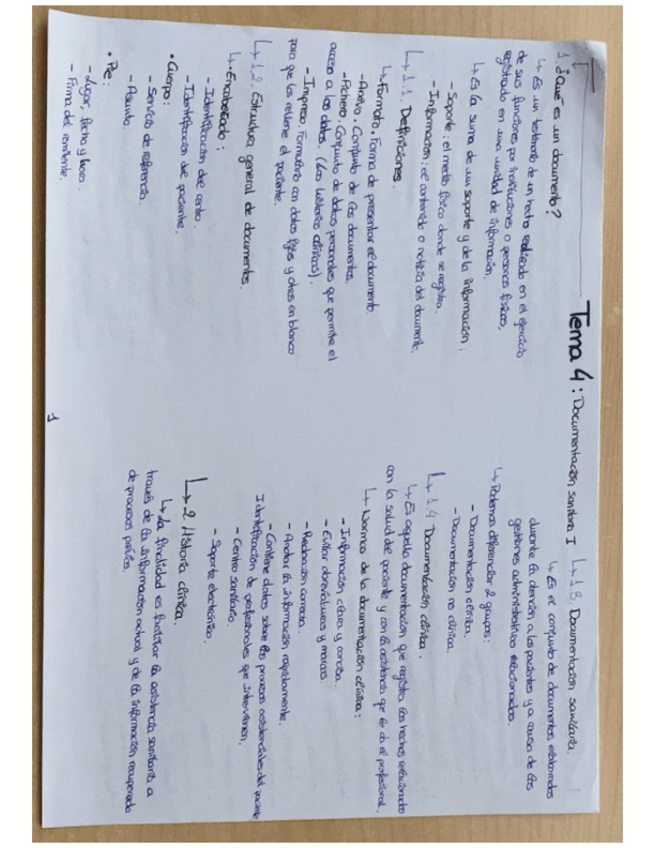 Tema 4: Documentación sanitaria I
1. ¿Qué es un documento?
↳ Es un testimonio de un hecho realizado en el ejercicio
de sus funciones por instituciones o personas físicas,
registrado en una unidad de información.
↳ Es la suma de un soporte y de la información:
- Soporte: el medio físico donde se registra.
- Información: el contenido o noticia del documento.
↳ 1.1. Definiciones.
↳ Formato. Forma de presentar el documento.
- Archivo. Conjunto de los documentos.
- Fichero. Conjunto de datos personales que permite el
acceso a los datos. (Las historias clínicas).
- Impreso. Formulario con datos fijos y otros en blanco
para que los rellene el paciente.
↳ 1.2. Estructura general de documentos.
↳ Encabezado:
- Identificación del centro.
- Identificación del paciente.
• Cuerpo:
- Servicio de referencia.
- Asunto.
• Pie:
- Lugar, fecha y hora.
- Firma del remitente.
1
↳ 1.3. Documentación sanitaria.
↳ Es el conjunto de documentos elaborados
durante la atención a los pacientes y a causa de las
gestiones administrativas relacionadas.
↳ Podemos diferenciar 2 grupos:
- Documentación clínica.
- Documentación no clínica.
↳ 1.4. Documentación clínica.
↳ Es aquella documentación que registra los hechos relacionados
con la salud del paciente y con la asistencia que le da el profesional.
↳ Normas de la documentación clínica:
- Información clara y concisa.
- Evitar abreviaturas y marcas.
- Redacción correcta.
- Anotar la información rápidamente.
- Contiene datos sobre los procesos asistenciales del paciente
Identificación de profesionales que intervienen.
- Centro sanitario.
- Soporte electrónico.
↳ 2. Historia clínica.
↳ La finalidad es facilitar la asistencia sanitaria a
través de la información actual y de la información recuperada
de procesos previos.